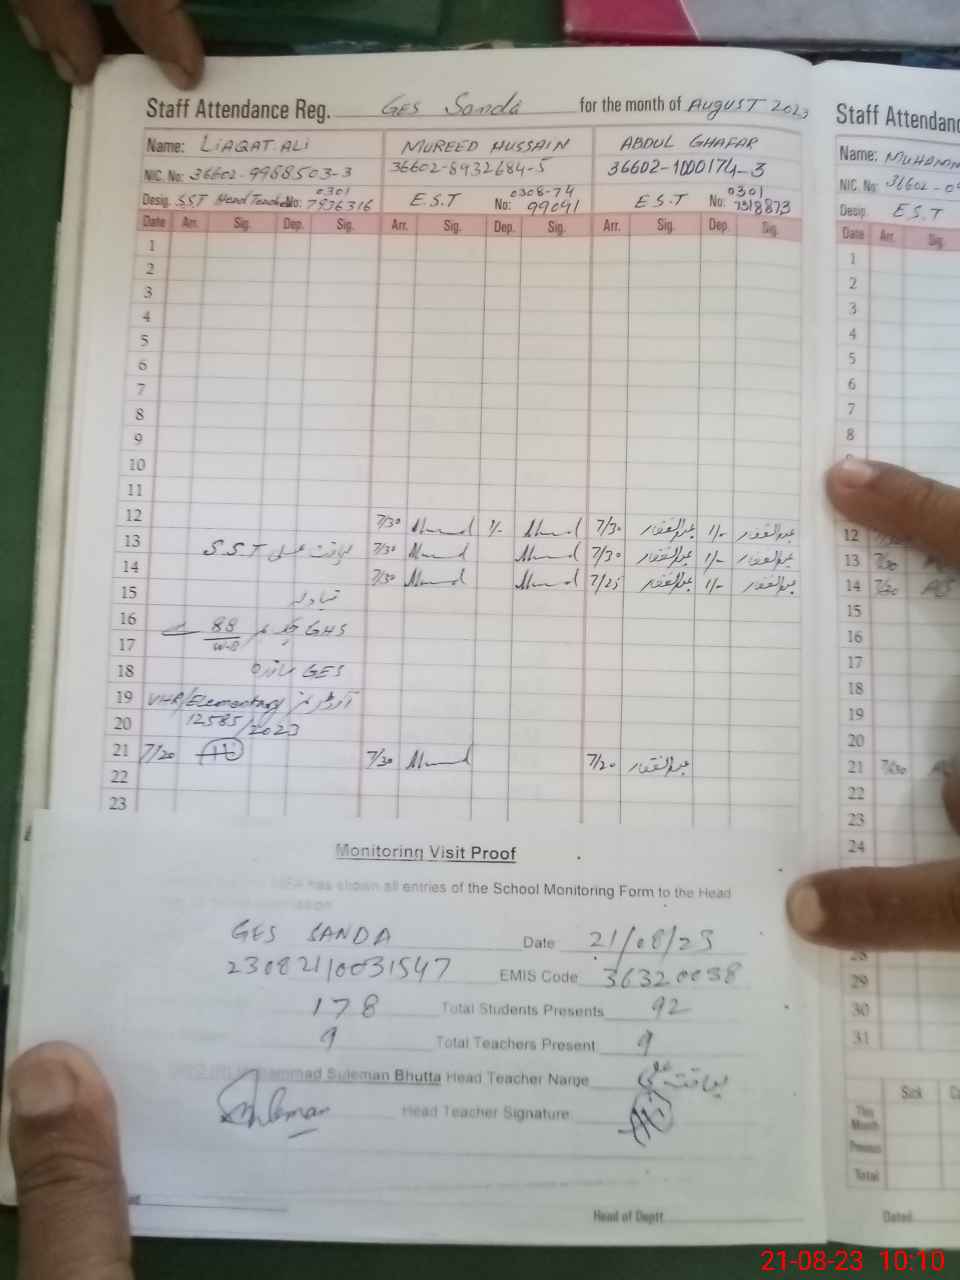 Staff Attendance Reg. GES Sanda for the month of AUGUST 2023
Name: LIAQAT ALI MUREED HUSSAIN ABDUL GHAFAR
NIC. No: 36602-9968503-3 36602-8932684-5 36602-1000174-3
Desig. SST Head Teacher No: 0301 7936316 E.S.T No: 0308-74 99091 E.S.T No: 0301 7318873
Date Arr. Sig. Dep. Sig. Arr. Sig. Dep. Sig. Arr. Sig. Dep. Sig.
1
2
3
4
5
6
7
8
9
10
11
12 7/30 1/- 7/30 عبدالغفار 1/- عبدالغفار
13 لیاقت علی S.S.T 7/30 7/30 عبدالغفار 1/- عبدالغفار
14 7/30 7/25 عبدالغفار 1/- عبدالغفار
15 تبادلہ
16 GHS 88
17 W.B
18 GES سانڈہ
19 VHR/Elementary
20 12585/2023
21 7/20 7/30 7/20 عبدالغفار
22
23
Staff Attendanc
Name: MUHAMM
NIC. No: 36602-0
Desig. E.S.T
Date Arr. Sig.
1
2
3
4
5
6
7
8
12
13 7/30
14 7/30
15
16
17
18
19
20
21 7/30
22
23
24
28
29
30
31
Sick
This Month
Previous
Total
Dated
Monitoring Visit Proof
MEA has shown all entries of the School Monitoring Form to the Head
GES SANDA Date 21/08/23
23082110031547 EMIS Code 36320038
178 Total Students Presents 92
9 Total Teachers Present 9
Muhammad Suleman Bhutta Head Teacher Name لیاقت علی
Suleman Head Teacher Signature
Head of Deptt
21-08-23 10:10